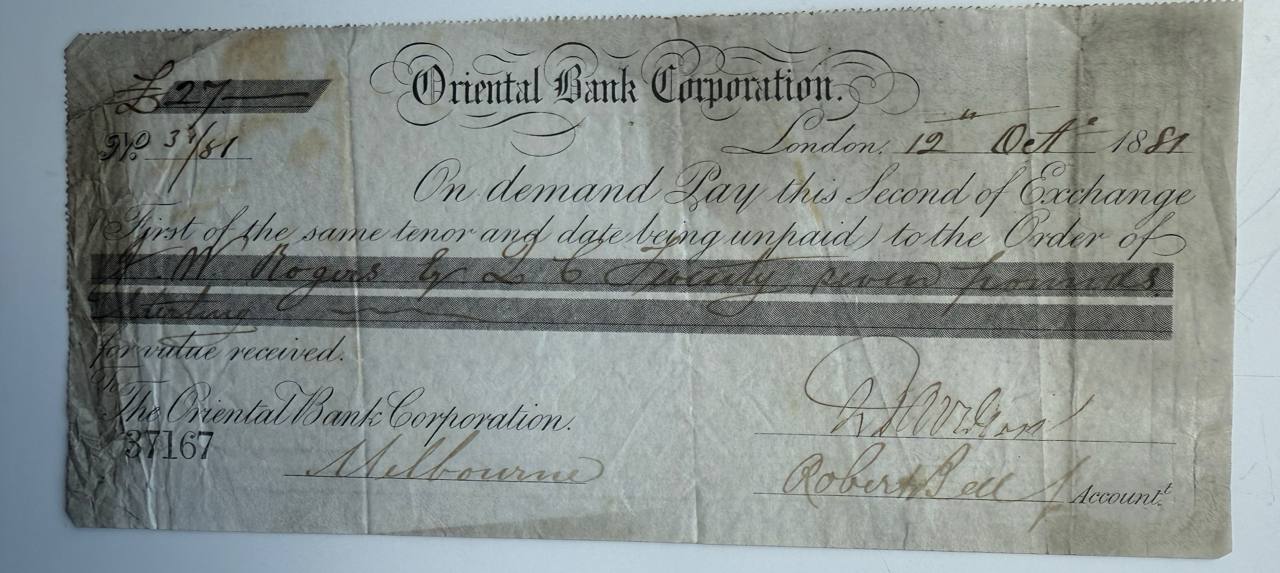 Oriental Bank Corporation.
£27
No 37/81
London, 12th Octr 1881
On demand Pay this Second of Exchange
(First of the same tenor and date being unpaid) to the Order of
W. Rogers Twenty seven pounds
Sterling
for value received.
To
The Oriental Bank Corporation.
37167
Melbourne
Robert Bell
Accountt.